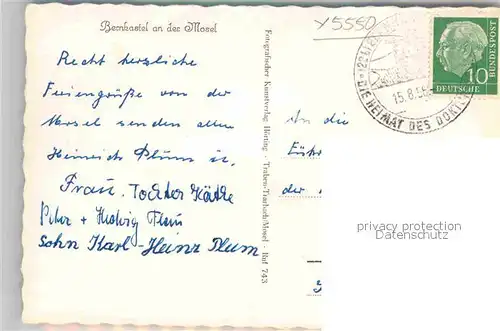 Bernkastel an der Mosel
y5550
Recht herzliche
Feriengrüße von der
Mosel senden allen
Heinrich Plum u.
Frau. Tochter Käthe
Peter + Hedwig
Sohn Karl-Heinz Plum
Fotografischer Kunstverlag Hörting - Traben-Trarbach/Mosel - Ruf 743
An die
der
DIE HEIMAT DES DOKTOR
15.8.56
10
DEUTSCHE
BUNDESPOST
privacy protection
Datenschutz